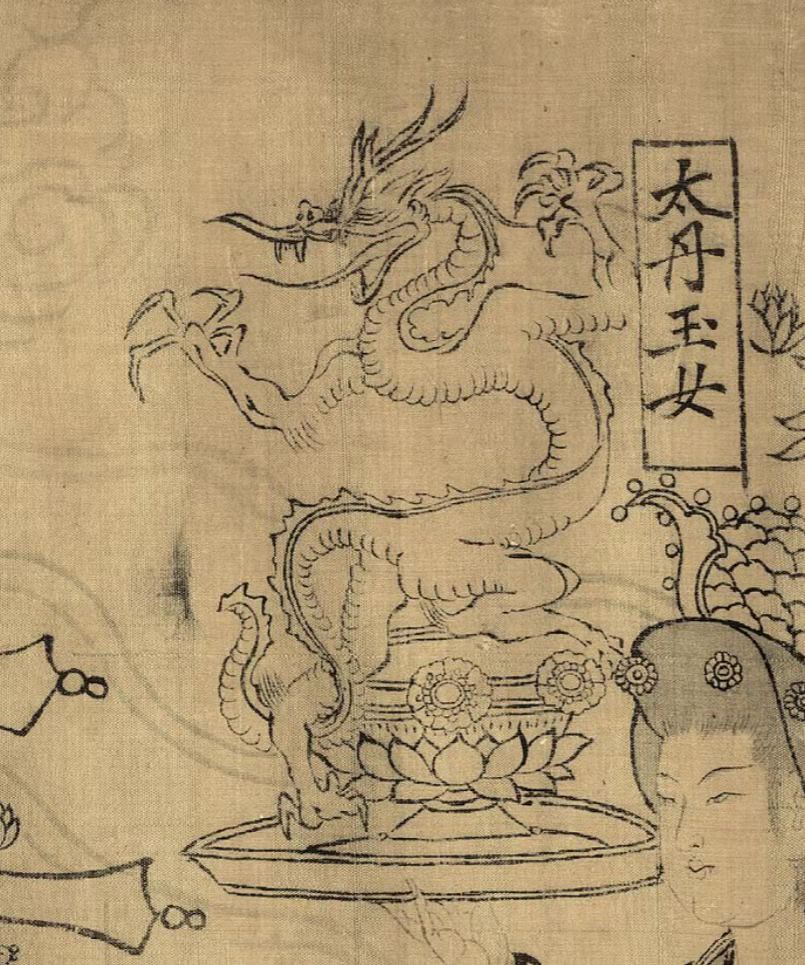 太丹玉女